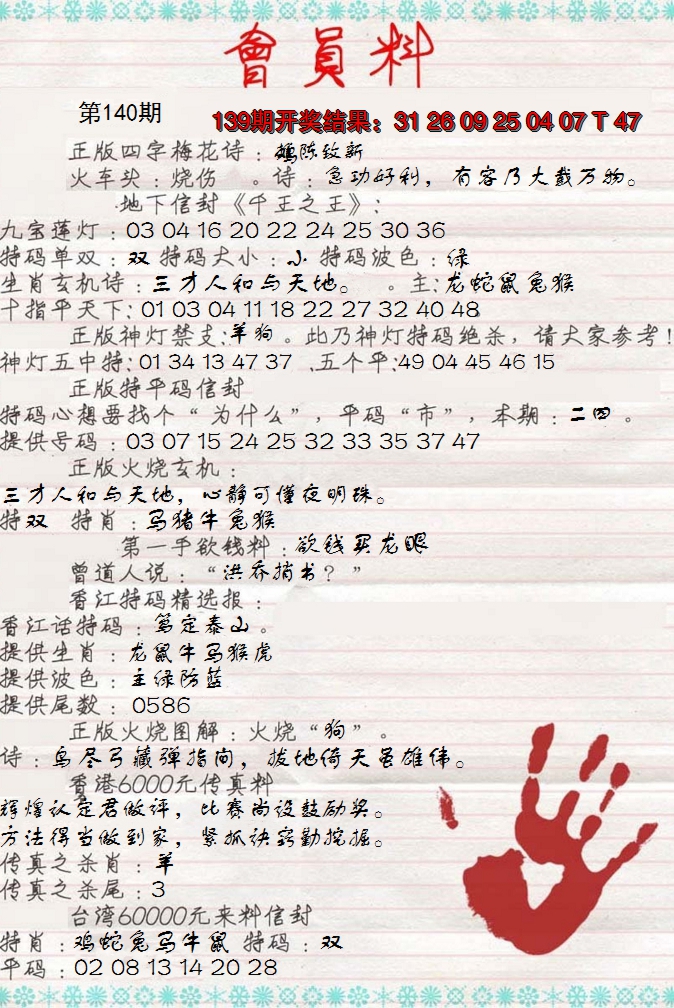 會員料
第140期
139期开奖结果：31 26 09 25 04 07 T 47
正版四字梅花诗：鹅陈致新
火车头：烧伤 。诗：急功好利，有容乃大载万物。
地下信封《千王之王》：
九宝莲灯：03 04 16 20 22 24 25 30 36
特码单双：双 特码大小：小 特码波色：绿
生肖玄机诗：三才人和与天地。 。主：龙蛇鼠兔猴
十指平天下：01 03 04 11 18 22 27 32 40 48
正版神灯禁支：羊狗。此乃神灯特码绝杀，请大家参考！
神灯五中特：01 34 13 47 37 、五个平：49 04 45 46 15
正版特平码信封
特码心想要找个“为什么”，平码“市”，本期：二四。
提供号码：03 07 15 24 25 32 33 35 37 47
正版火烧玄机：
三才人和与天地，心静可懂夜明珠。
特双 特肖：马猪牛兔猴
第一手欲钱料：欲钱买龙眼
曾道人说：“洪乔捎书？”
香江特码精选报：
香江话特码：笃定泰山。
提供生肖：龙鼠牛马猴虎
提供波色：主绿防蓝
提供尾数：0586
正版火烧图解：火烧“狗”。
诗：鸟尽弓藏弹指间，拔地倚天虽雄伟。
香港6000元传真料
辉煌认定君做评，比赛尚设鼓励奖。
方法得当做到家，紧抓诀窍勤挖掘。
传真之杀肖：羊
传真之杀尾：3
台湾60000元来料信封
特肖：鸡蛇兔马牛鼠 特码：双
平码：02 08 13 14 20 28